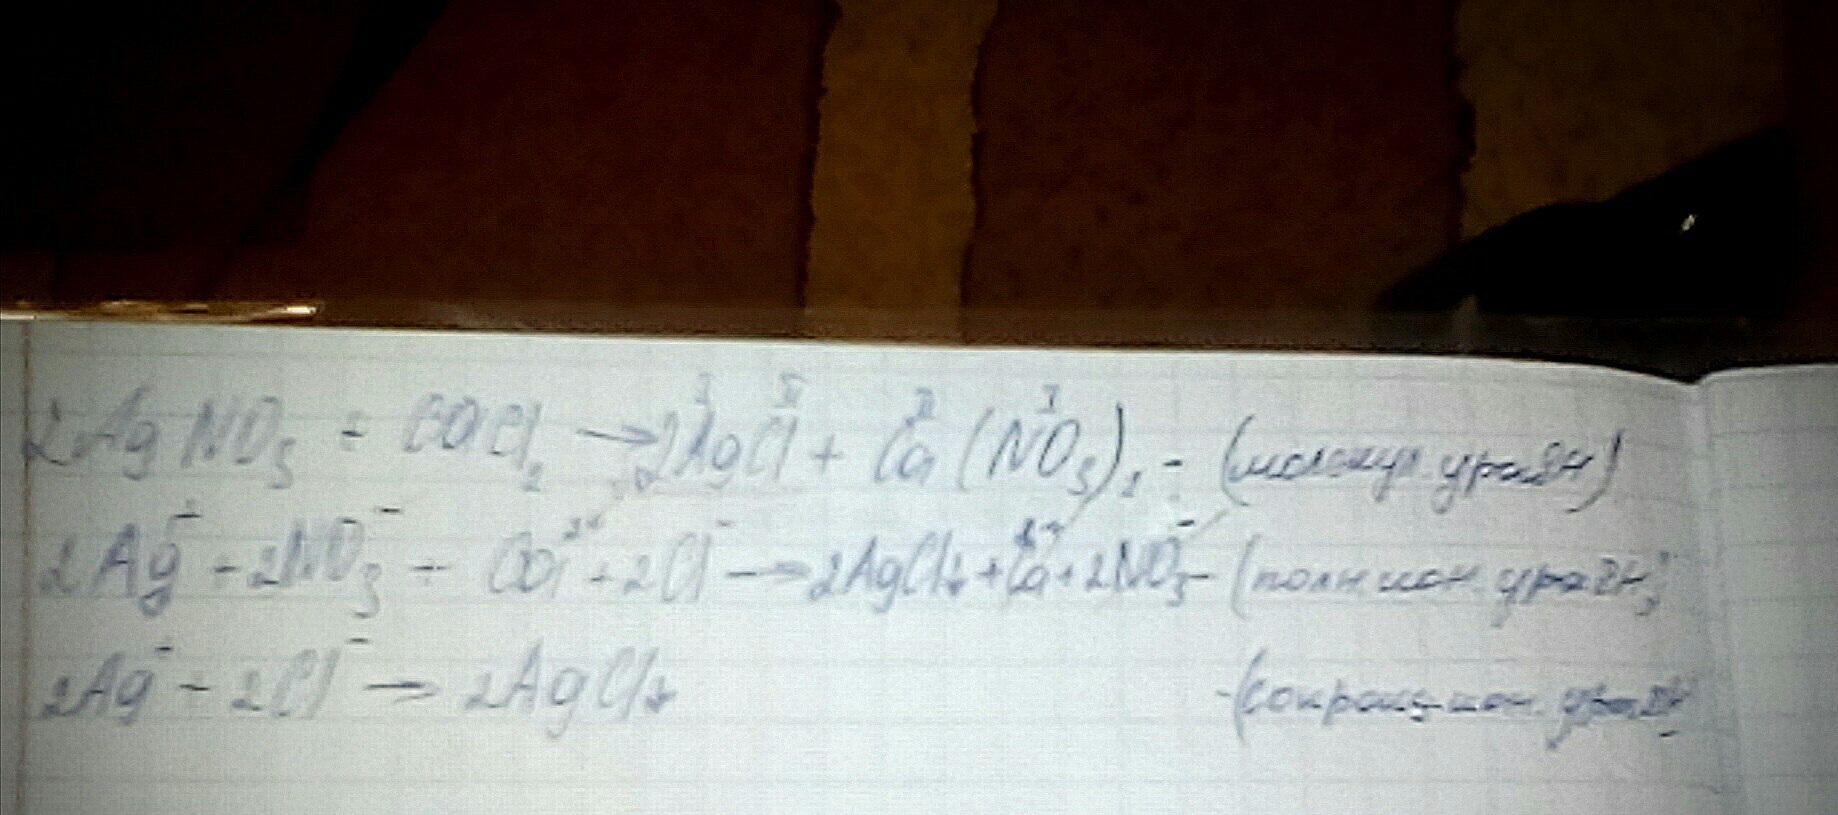 2AgNO₃ + CaCl₂ → 2AgCl + Ca(NO₃)₂ - (молекул. уравн)
2Ag⁺ + 2NO₃⁻ + Ca²⁺ + 2Cl⁻ → 2AgCl↓ + Ca²⁺ + 2NO₃⁻ - (полн. ион. уравн.)
2Ag⁺ + 2Cl⁻ → 2AgCl↓ - (сокращ. ион. уравн